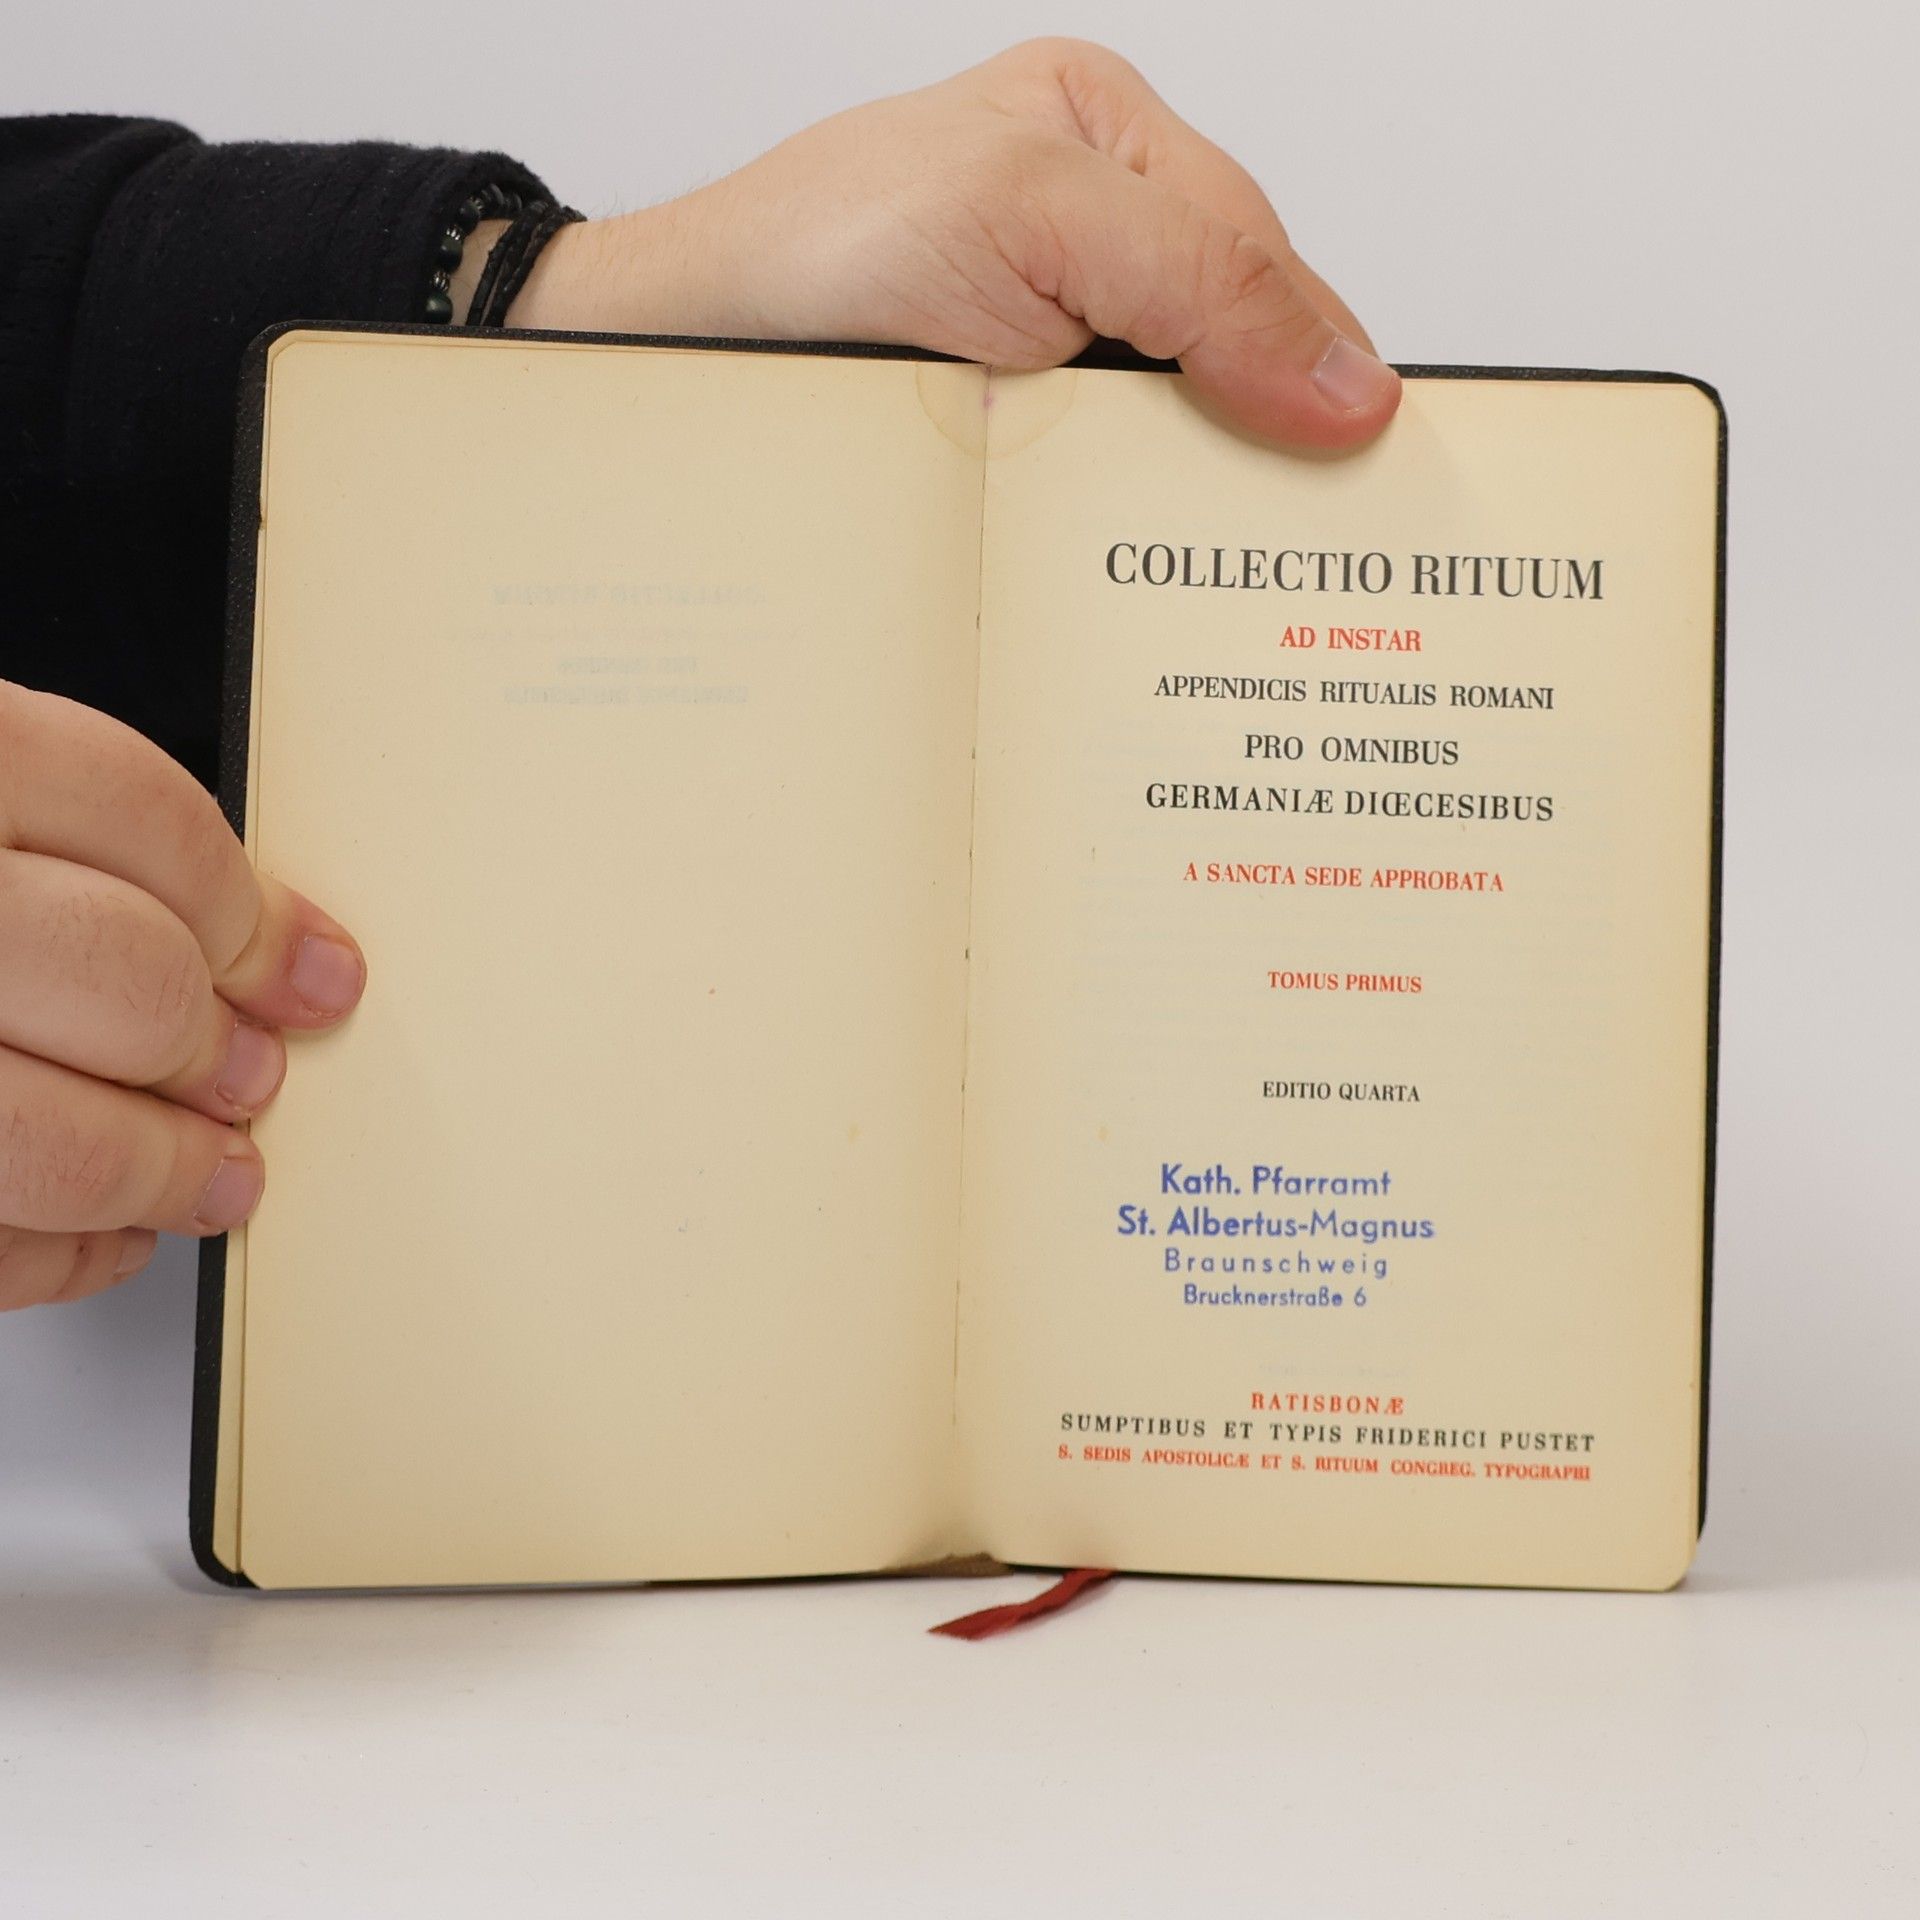 COLLECTIO RITUUM
AD INSTAR
APPENDICIS RITUALIS ROMANI
PRO OMNIBUS
GERMANIÆ DIŒCESIBUS
A SANCTA SEDE APPROBATA
TOMUS PRIMUS
EDITIO QUARTA
Kath. Pfarramt
St. Albertus-Magnus
Braunschweig
Brucknerstraße 6
RATISBONÆ
SUMPTIBUS ET TYPIS FRIDERICI PUSTET
S. SEDIS APOSTOLICÆ ET S. RITUUM CONGREG. TYPOGRAPHI